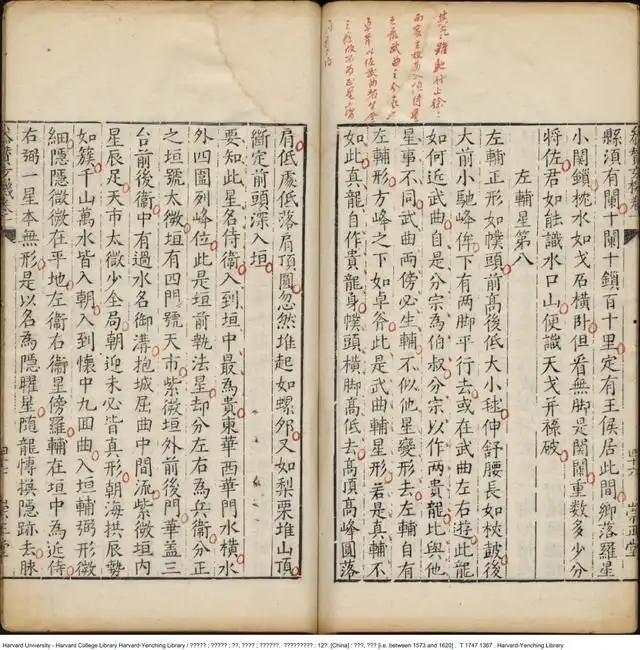 縣須有闌十闌十鎖百十里定有王侯居此間鄉落羅星
小關鎖枕水如戈石橫卧但看無脚是關闌重數多少分
將佐君如能識水口山便識天戈并祿破
左輔星第八
左輔正形如幞頭前高後低大小毬伸舒腰長如杖皷後
大前小馳峰侔下有兩脚平行去或在武曲左右遊此龍
如何近武曲自是分宗為伯叔分宗以作兩貴龍比與他
星事不同武曲兩傍必生輔不似他星變形去左輔自有
左輔形方峰之下如卓斧此是武曲輔星形若是真輔不
如此真龍自作貴龍身幞頭橫脚高低去高頂高峰圓落
肩低處低落肩頂圓忽然堆起如螺夘又如梨栗堆山頂
斷定前頭深入垣
要知此星名侍衞入到垣中最為貴東華西華門水橫水
外四圍列峰位此是垣前執法星却分左右為兵衞分正
之垣號太微垣有四門號天市紫微垣外前後門華盖三
台前後衞中有過水名御溝抱城屈曲中間流紫微垣内
星辰足天市太微少全局朝迎未必皆真形朝海拱辰勢
如簇千山萬水皆入朝入到懷中九囬曲入垣輔弼形微
細隱隱微微在平地左衞右衞星傍羅輔在垣中為近侍
右弼一星本無形是以名為隱曜星隨龍愽撰隱跡去脉
Harvard University - Harvard College Library Harvard-Yenching Library / ????? ; ????? : ??, ???? ; ??????. ????????? : 12?. [China] : ???, ??? [i.e. between 1573 and 1620] . T 1747 1367 . Harvard-Yenching Library